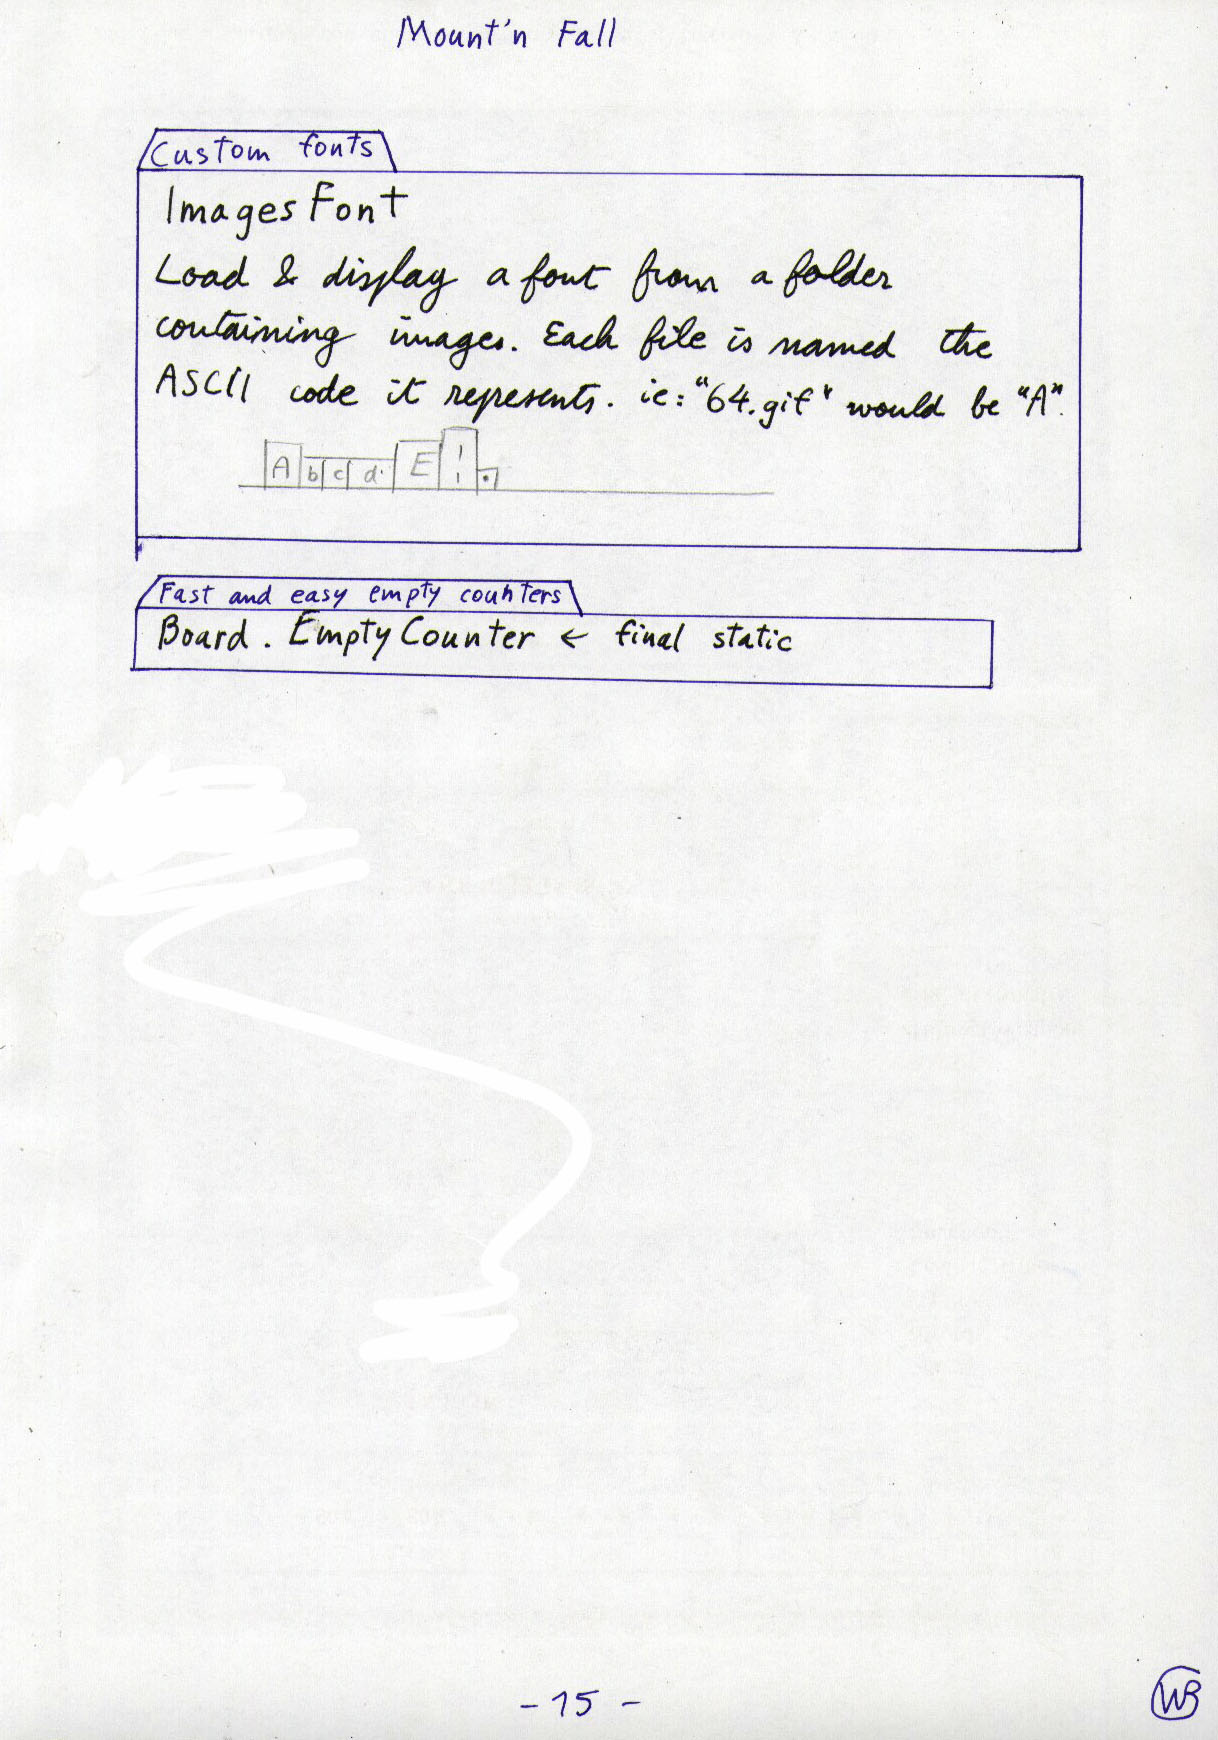 Mount'n Fall
Custom fonts
ImagesFont
Load & display a font from a folder
containing images. Each file is named the
ASCII code it represents. ie: "64.gif" would be "A".
A b c d E ! .
Fast and easy empty counters
Board. EmptyCounter ← final static
- 15 -
WB